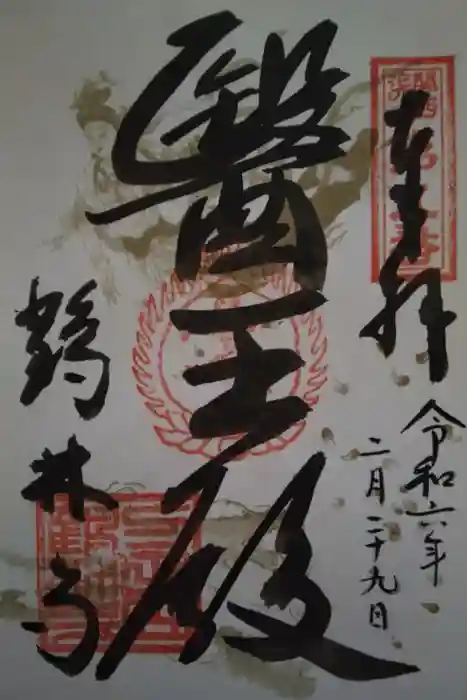 奉拝
令和六年
二月二十九日
醫王殿
鶴林寺